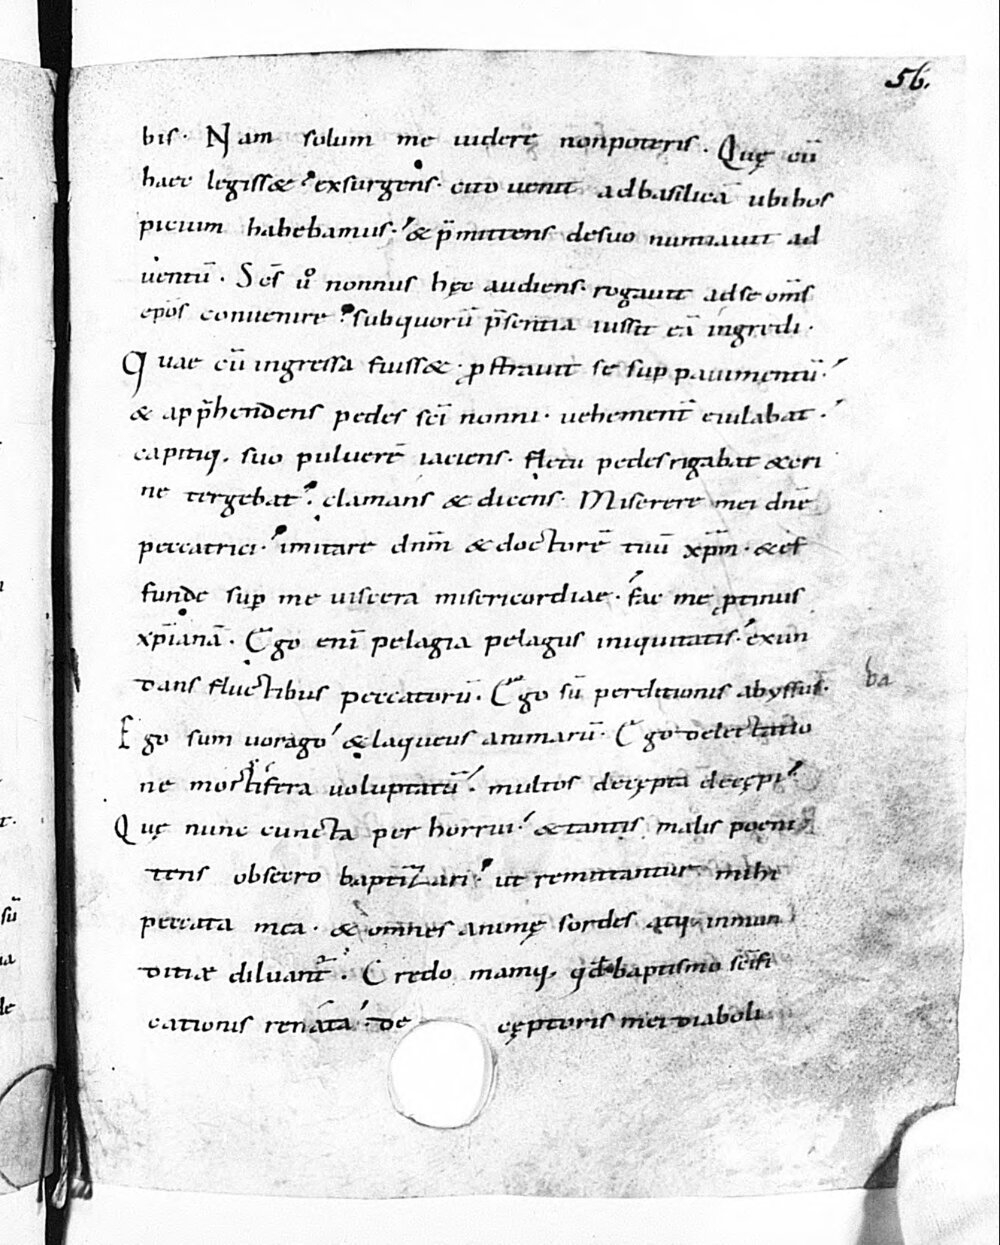 56.
bis· Nam solum me uidere nonpoteris. Quę cū
haec legiss& exsurgens· cito uenit adbasilicā ubi bos
picium habebamus· & p̄mittens desuo nuntiauit ad
uentū. S͞cs ůo nonnus hęc audiens· rogauit adse om̄s
ep̄os conuenire subquorū p̄sentia iussit eā ingredi·
Quae cū ingressa fuiss& ꝓstrauit se suꝑ pauimentū·
& app̄hendens pedes sc̄i nonni· uehement̄ eiulabat·
capitiq; suo puluerē iaciens· fletu pedes rigabat & cri
ne tergebat· clamans & dicens· Miserere mei dn̄e
peccatrici· imitare dn̄m & doctorē tuū xp̄m· & ef
funde suꝑ me uiscera misericordiae· fac me ꝓtinus
xp̄ianā· Ego eni̅ pelagia pelagus iniquitatis· exun
dans fluctibus peccatorū· Ego sū perditionis abyssus·
ba
Ego sum uorago & laqueus animarū· Ego delectatio
ne mortifera uoluptatū· multos decępta decępi·
Quę nunc cuncta per horrui· & tantis malis poeni
tens obsecro baptizari· ut remittantur mihi
peccata mea· & omnes animę sordes atq; inmun
ditiae diluant̄· Credo namq; qđ baptismo sc̄ifi
cationis renata· de cęptoris mei diaboli